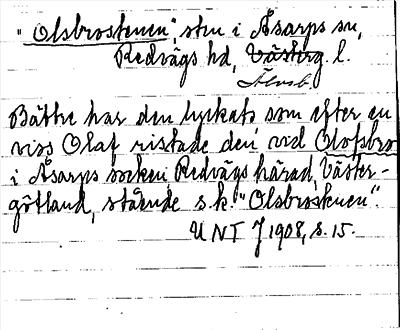 "Olsbrostenen", sten i Åsarps sn,
Redvägs hd, Västerg l.
Älvsb.
Bättre har den lyckats som efter en
viss Olaf ristade den vid Olofsbro
i Åsarps socken, Redvägs härad, Väster-
götland, stående s.k. "Olsbrostenen".
UNT J 1908, s. 15.